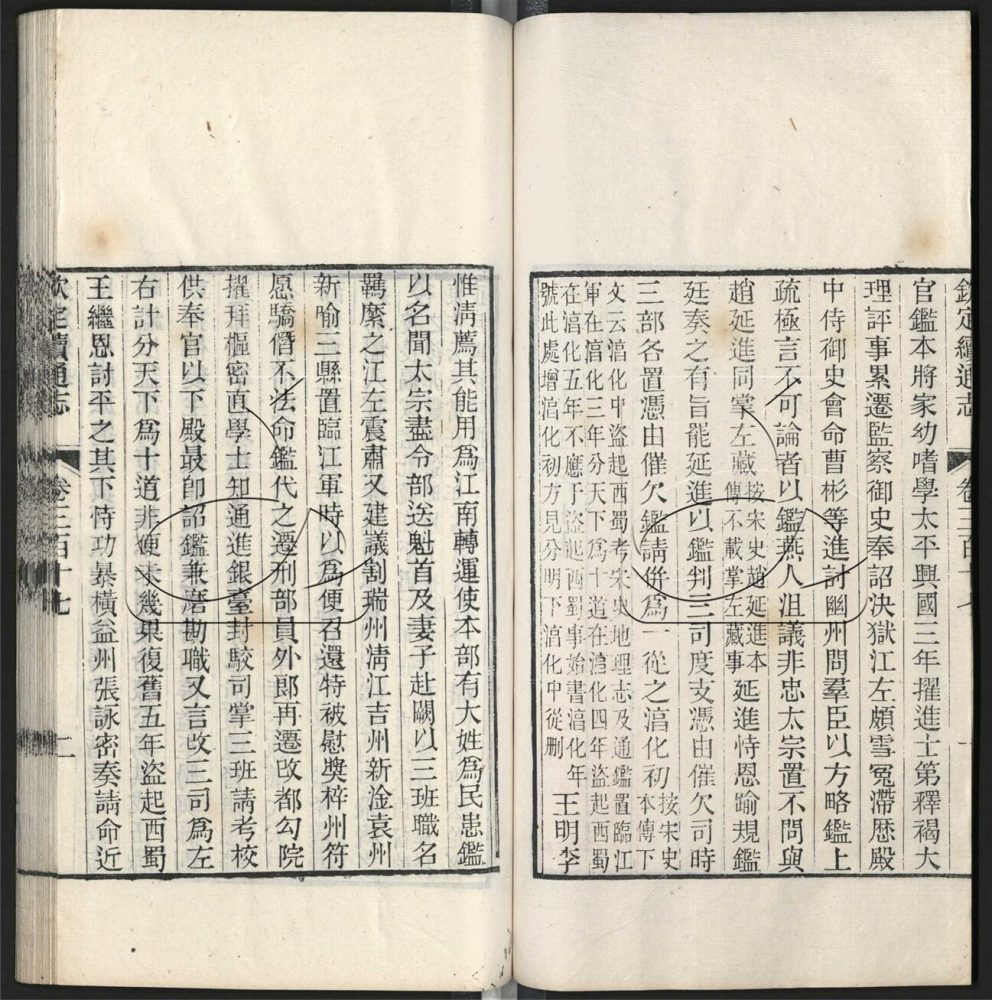 欽定續通志 卷三百十七 一
官鑑本將家幼嗜學太平興國三年擢進士第釋褐大
理評事累遷監察御史奉詔決獄江左頗雪冤滯歷殿
中侍御史會命曹彬等進討幽州問羣臣以方略鑑上
疏極言不可論者以鑑燕人沮議非忠太宗置不問與
趙延進同掌左藏按宋史趙延進本傳不載掌左藏事延進恃恩踰規鑑
廷奏之有旨罷延進以鑑判三司度支憑由催欠司時
三部各置憑由催欠鑑請併為一從之淯化初按宋史本傳下
文云淯化中盜起西蜀考宋史地理志及通鑑置臨江
軍在淯化三年分天下爲十道在淯化四年盜起西蜀
在淯化五年不應于盜起西蜀事始書淯化年
號此處增淯化初方見分明下淯化中從删王明李
惟淸薦其能用爲江南轉運使本部有大姓爲民患鑑
以名聞太宗盡令部送魁首及妻子赴闕以三班職名
羈縻之江左震肅又建議割瑞州淸江吉州新淦袁州
新喻三縣置臨江軍時以爲便召還特被慰獎梓州符
愿驕僭不法命鑑代之遷刑部員外郎再遷改都勾院
擢拜樞密直學士知通進銀臺封駮司掌三班請考校
供奉官以下殿最卽詔鑑兼磨勘職又言改三司爲左
右計分天下爲十道非便未幾果復舊五年盜起西蜀
王繼恩討平之其下恃功暴橫益州張詠密奏請命近
欽定續通志 卷三百十七 二